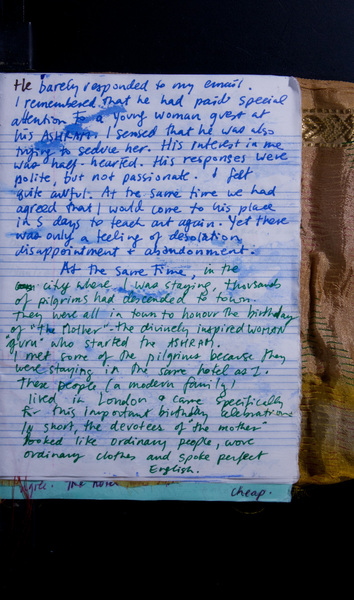 He barely responded to my email.
I remembered that he had paid special
attention to a young woman guest at
his ASHRAM. I sensed that he was also
trying to seduce her. His interest in me
was half-hearted. His responses were
polite, but not passionate. I felt
quite awful. At the same time we had
agreed that I would come to his place
in 5 days to teach art again. Yet there
was only a feeling of desolation,
disappointment & abandonment.
At the same time, in the
city where I was staying, thousands
of pilgrims had descended to town.
They were all in town to honour the birthday
of "the Mother" - the divinely inspired WOMAN
"guru" who started the ASHRAM.
I met some of the pilgrims because they
were staying in the same hotel as I.
These people (a modern family)
lived in London & came specifically
for this important birthday celebration.
In short, the devotees of "the mother"
looked like ordinary people, wore
ordinary clothes and spoke perfect
English.
The hotel
cheap.